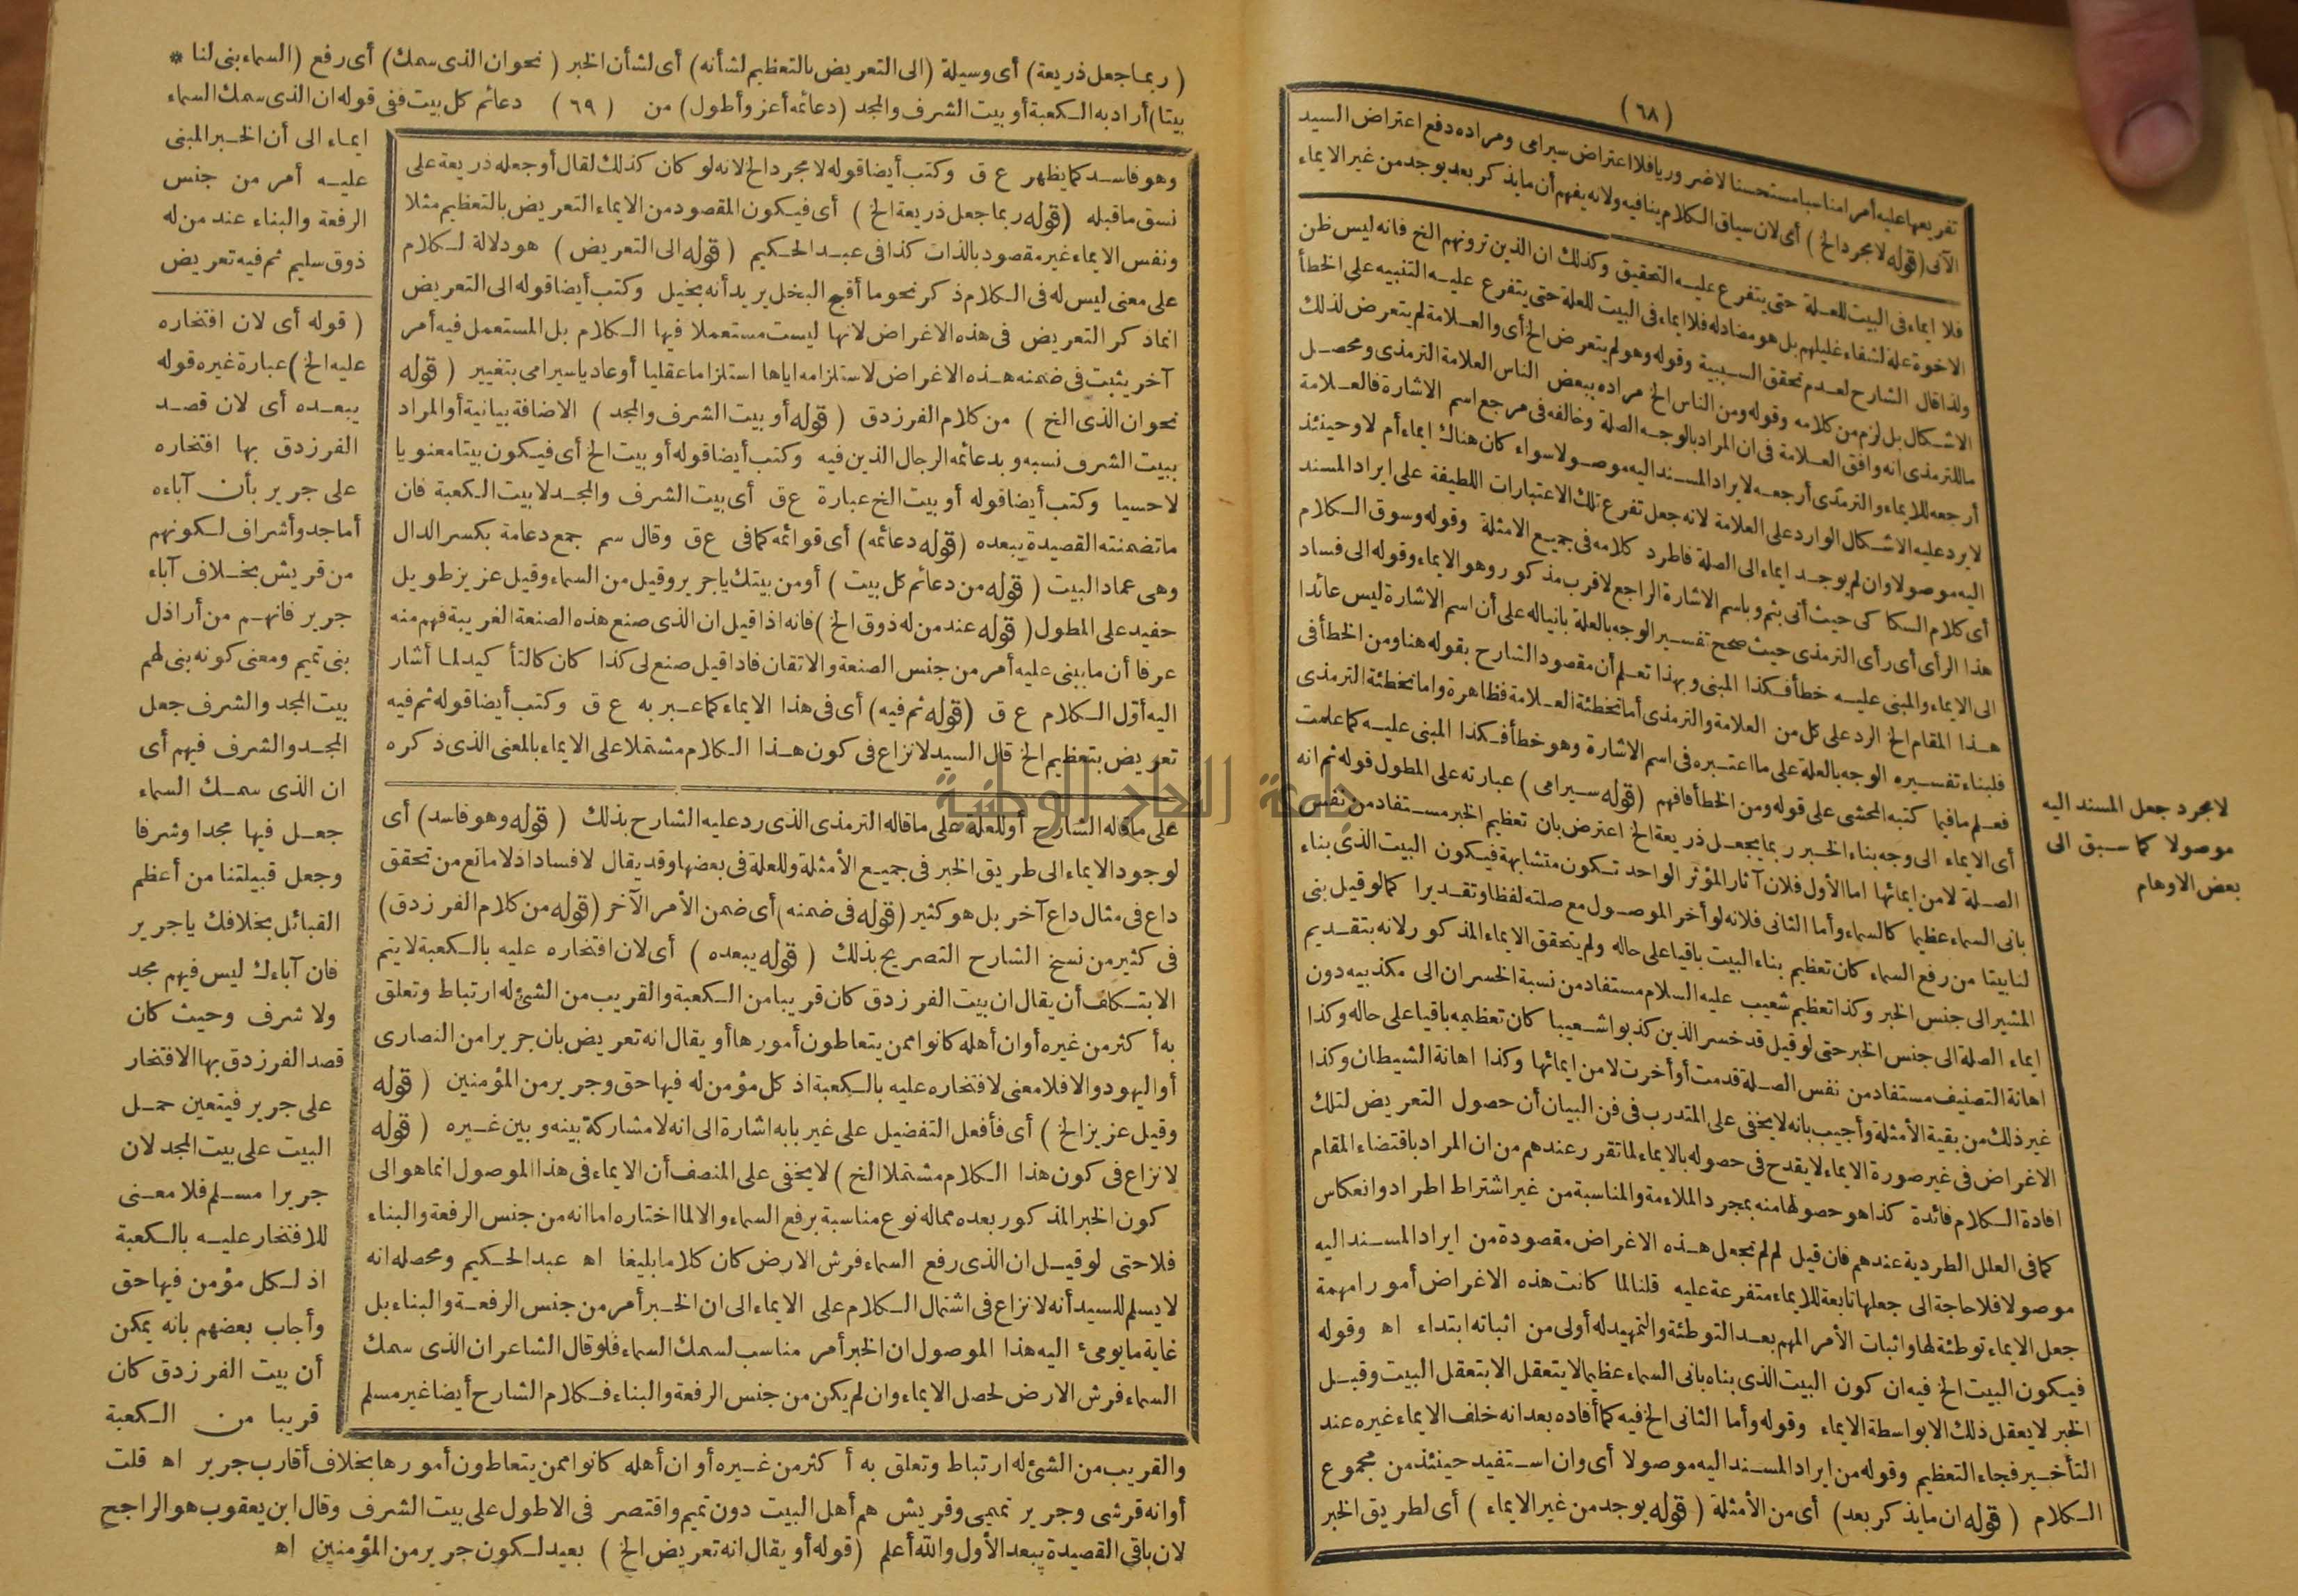 (٦٨)
تفريعها عليه أمرا مناسبا مستحسنا لا ضروريا فلا اعتراض سيرامى ومراده دفع اعتراض السيد
الآتى (قوله لا مجرد الخ) أى لان سياق الكلام ينافيه ولانه يفهم أن ما يذكر بعد يوجد من غير الايماء
فلا ايماء فى البيت للعلة حتى يتفرع عليه التحقيق وكذلك ان الذين ترونهم الخ فانه ليس ظن
الاخوة علة لشفاء غليلهم بل هو مضاد له فلا ايماء فى البيت للعلة حتى يتفرع عليه التنبيه على الخطأ
ولذا قال الشارح لعدم تحقق السببية وقوله وهو لم يتعرض الخ أى والعلامة لم يتعرض لذلك
الاشكال بل لزم من كلامه وقوله ومن الناس الخ مراده ببعض الناس العلامة الترمذى ومحصل
ما للترمذى انه وافق العلامة فى ان المراد بالوجه الصلة وخالفه فى مرجع اسم الاشارة فالعلامة
أرجعه للايماء والترمذى أرجعه لايراد المسند اليه موصولا سواء كان هناك ايماء أم لا وحينئذ
لا يرد عليه الاشكال الوارد على العلامة لانه جعل تفرع تلك الاعتبارات اللطيفة على ايراد المسند
اليه موصولا وان لم يوجد ايماء الى الصلة فاطرد كلامه فى جميع الامثلة وقوله وسوق الكلام
أى كلام السكاكى حيث أتى بثم وباسم الاشارة الراجع لاقرب مذكور وهو الايماء وقوله الى فساد
هذا الرأى أى رأى الترمذى حيث صحح تفسير الوجه بالعلة بانياله على أن اسم الاشارة ليس عائدا
الى الايماء والمبنى عليه خطأ فكذا المبنى وبهذا تعلم أن مقصود الشارح بقوله هنا ومن الخطأ فى
هذا المقام الخ الرد على كل من العلامة والترمذى أما تخطئة العلامة فظاهرة واما تخطئة الترمذى
فلبناء تفسيره الوجه بالعلة على ما اعتبره فى اسم الاشارة وهو خطأ فكذا المبنى عليه كما علمت
فعلم مافيما كتبه المحشى على قوله ومن الخطأ فافهم (قوله سيرامى) عبارته على المطول قوله ثم انه
أى الايماء الى وجه بناء الخبر ربما يجعل ذريعة الخ اعترض بان تعظيم الخبر مستفاد من نفس
الصلة لا من ايمائها اما الأول فلان آثار المؤثر الواحد تكون متشابهة فيكون البيت الذى بناء
بانى السماء عظيما كالسماء وأما الثانى فلانه لو أخر الموصول مع صلته لفظا وتقديرا كما لو قيل بنى
لنا بيتا من رفع السماء كان تعظيم بناء البيت باقيا على حاله ولم يتحقق الايماء المذكور لانه بتقديم
المشير الى جنس الخبر وكذا تعظيم شعيب عليه السلام مستفاد من نسبة الخسران الى مكذبيه دون
ايماء الصلة الى جنس الخبر حتى لو قيل قد خسر الذين كذبوا شعيبا كان تعظيمه باقيا على حاله وكذا
اهانة التصنيف مستفاد من نفس الصلة قدمت أو أخرت لا من ايمائها وكذا اهانة الشيطان وكذا
غير ذلك من بقية الأمثلة وأجيب بانه لا يخفى على المتدرب فى فن البيان أن حصول التعريض لتلك
الاغراض فى غير صورة الايماء لا يقدح فى حصوله بالايماء لما تقرر عندهم من ان المراد باقتضاء المقام
افادة الكلام فائدة كذا هو حصولها منه بمجرد الملاءمة والمناسبة من غير اشتراط اطراد وانعكاس
كما فى العلل الطردية عندهم فان قيل لم لم تجعل هذه الاغراض مقصودة من ايراد المسند اليه
موصولا فلا حاجة الى جعلها تابعة للايماء متفرعة عليه قلنا لما كانت هذه الاغراض أمورا مهمة
جعل الايماء توطئة لها واثبات الأمر المهم بعد التوطئة والتمهيد له أولى من اثباته ابتداء اه وقوله
فيكون البيت الخ فيه ان كون البيت الذى بناه بانى السماء عظيما لا يتعقل الا بتعقل البيت وقبل
الخبر لا يعقل ذلك الا بواسطة الايماء وقوله وأما الثانى الخ فيه كما أفاده بعد انه خلف الايماء غيره عند
التأخير فجاء التعظيم وقوله من ايراد المسند اليه موصولا أى وان استفيد حينئذ من مجموع
الكلام (قوله ان ما يذكر بعد) أى من الأمثلة (قوله يوجد من غير الايماء) أى لطريق الخبر
لا مجرد جعل المسند اليه
موصولا كما سبق الى
بعض الاوهام
(ربما جعل ذريعة) أى وسيلة (الى التعريض بالتعظيم لشأنه) أى لشأن الخبر (نحو ان الذى سمك) أى رفع (السماء بنى لنا *
بيتا) أراد به الكعبة أو بيت الشرف والمجد (دعائمه أعز وأطول) من (٦٩) دعائم كل بيت ففى قوله ان الذى سمك السماء
ايماء الى أن الخبر المبنى
عليه أمر من جنس
الرفعة والبناء عند من له
ذوق سليم ثم فيه تعريض
وهو فاسد كما يظهر ع ق وكتب أيضا قوله لا مجرد الخ لانه لو كان كذلك لقال أو جعله ذريعة على
نسق ما قبله (قوله ربما جعل ذريعة الخ) أى فيكون المقصود من الايماء التعريض بالتعظيم مثلا
ونفس الايماء غير مقصود بالذات كذا فى عبد الحكيم (قوله الى التعريض) هو دلالة لكلام
على معنى ليس له فى الكلام ذكر نحو ما أقبح البخل يريد أنه بخيل وكتب أيضا قوله الى التعريض
انما ذكر التعريض فى هذه الاغراض لانها ليست مستعملا فيها الكلام بل المستعمل فيه أمر
آخر يثبت فى ضمنه هذه الاغراض لاستلزامه اياها استلزاما عقليا أو عاديا سيرامى بتغيير (قوله
نحو ان الذى الخ) من كلام الفرزدق (قوله أو بيت الشرف والمجد) الاضافة بيانية أو المراد
ببيت الشرف نسبه وبدعائمه الرجال الذين فيه وكتب أيضا قوله أو بيت الخ أى فيكون بيتا معنويا
لا حسيا وكتب أيضا قوله أو بيت الخ عبارة ع ق أى بيت الشرف والمجد لا بيت الكعبة فان
ما تضمنته القصيدة يبعده (قوله دعائمه) أى قوائمه كما فى ع ق وقال سم جمع دعامة بكسر الدال
وهى عماد البيت (قوله من دعائم كل بيت) أو من بيتك يا جرير وقيل من السماء وقيل عزيز طويل
حفيد على المطول (قوله عند من له ذوق الخ) فانه اذا قيل ان الذى صنع هذه الصنعة الغريبة فهم منه
عرفا أن ما يبنى عليه أمر من جنس الصنعة والاتقان فاذا قيل صنع لى كذا كان كالتأكيد لما أشار
اليه أول الكلام ع ق (قوله ثم فيه) أى فى هذا الايماء كما عبر به ع ق وكتب أيضا قوله ثم فيه
تعريض بتعظيم الخ قال السيد لا نزاع فى كون هذا الكلام مشتملا على الايماء بالمعنى الذى ذكره
على ما قاله الشارح أو للعلة على ما قاله الترمذى الذى رد عليه الشارح بذلك (قوله وهو فاسد) أى
لوجود الايماء الى طريق الخبر فى جميع الأمثلة وللعلة فى بعضها وقد يقال لا فساد اذ لا مانع من تحقق
داع فى مثال داع آخر بل هو كثير (قوله فى ضمنه) أى ضمن الأمر الآخر (قوله من كلام الفرزدق)
فى كثير من نسخ الشارح التصريح بذلك (قوله يبعده) أى لان افتخاره عليه بالكعبة لا يتم
الا بتكلف أن يقال ان بيت الفرزدق كان قريبا من الكعبة والقريب من الشئ له ارتباط وتعلق
به أكثر من غيره أو ان أهله كانوا ممن يتعاطون أمورها أو يقال انه تعريض بان جريرا من النصارى
أو اليهود والا فلا معنى لافتخاره عليه بالكعبة اذ كل مؤمن له فيها حق وجرير من المؤمنين (قوله
وقيل عزيز الخ) أى فأفعل التفضيل على غير بابه اشارة الى انه لا مشاركة بينه وبين غيره (قوله
لا نزاع فى كون هذا الكلام مشتملا الخ) لا يخفى على المنصف أن الايماء فى هذا الموصول انما هو الى
كون الخبر المذكور بعده مماله نوع مناسبة برفع السماء والا لما اختاره اما انه من جنس الرفعة والبناء
فلا حتى لو قيل ان الذى رفع السماء فرش الارض كان كلاما بليغا اه عبد الحكيم ومحصله انه
لا يسلم للسيد أنه لا نزاع فى اشتمال الكلام على الايماء الى ان الخبر أمر من جنس الرفعة والبناء بل
غاية ما يومئ اليه هذا الموصول ان الخبر أمر مناسب لسمك السماء فلو قال الشاعر ان الذى سمك
السماء فرش الارض لحصل الايماء وان لم يكن من جنس الرفعة والبناء فكلام الشارح أيضا غير مسلم
(قوله أى لان افتخاره
عليه الخ) عبارة غيره قوله
يبعده أى لان قصد
الفرزدق بها افتخاره
على جرير بأن آباءه
أماجد وأشراف لكونهم
من قريش بخلاف آباء
جرير فانهم من أراذل
بنى تميم ومعنى كونه بنى لهم
بيت المجد والشرف جعل
المجد والشرف فيهم أى
ان الذى سمك السماء
جعل فيها مجدا وشرفا
وجعل قبيلتنا من أعظم
القبائل بخلافك يا جرير
فان آباءك ليس فيهم مجد
ولا شرف وحيث كان
قصد الفرزدق بها الافتخار
على جرير فيتعين حمل
البيت على بيت المجد لان
جريرا مسلم فلا معنى
للافتخار عليه بالكعبة
اذ لكل مؤمن فيها حق
وأجاب بعضهم بانه يمكن
أن بيت الفرزدق كان
قريبا من الكعبة
والقريب من الشئ له ارتباط وتعلق به أكثر من غيره أو ان أهله كانوا ممن يتعاطون أمورها بخلاف أقارب جرير اه قلت
أو انه قرشى وجرير تميمى وقريش هم أهل البيت دون تميم واقتصر فى الاطول على بيت الشرف وقال ابن يعقوب هو الراجح
لان باقى القصيدة يبعد الأول والله أعلم (قوله أو يقال انه تعريض الخ) بعيد لكون جرير من المؤمنين اه
جامعة النجاح الوطنية